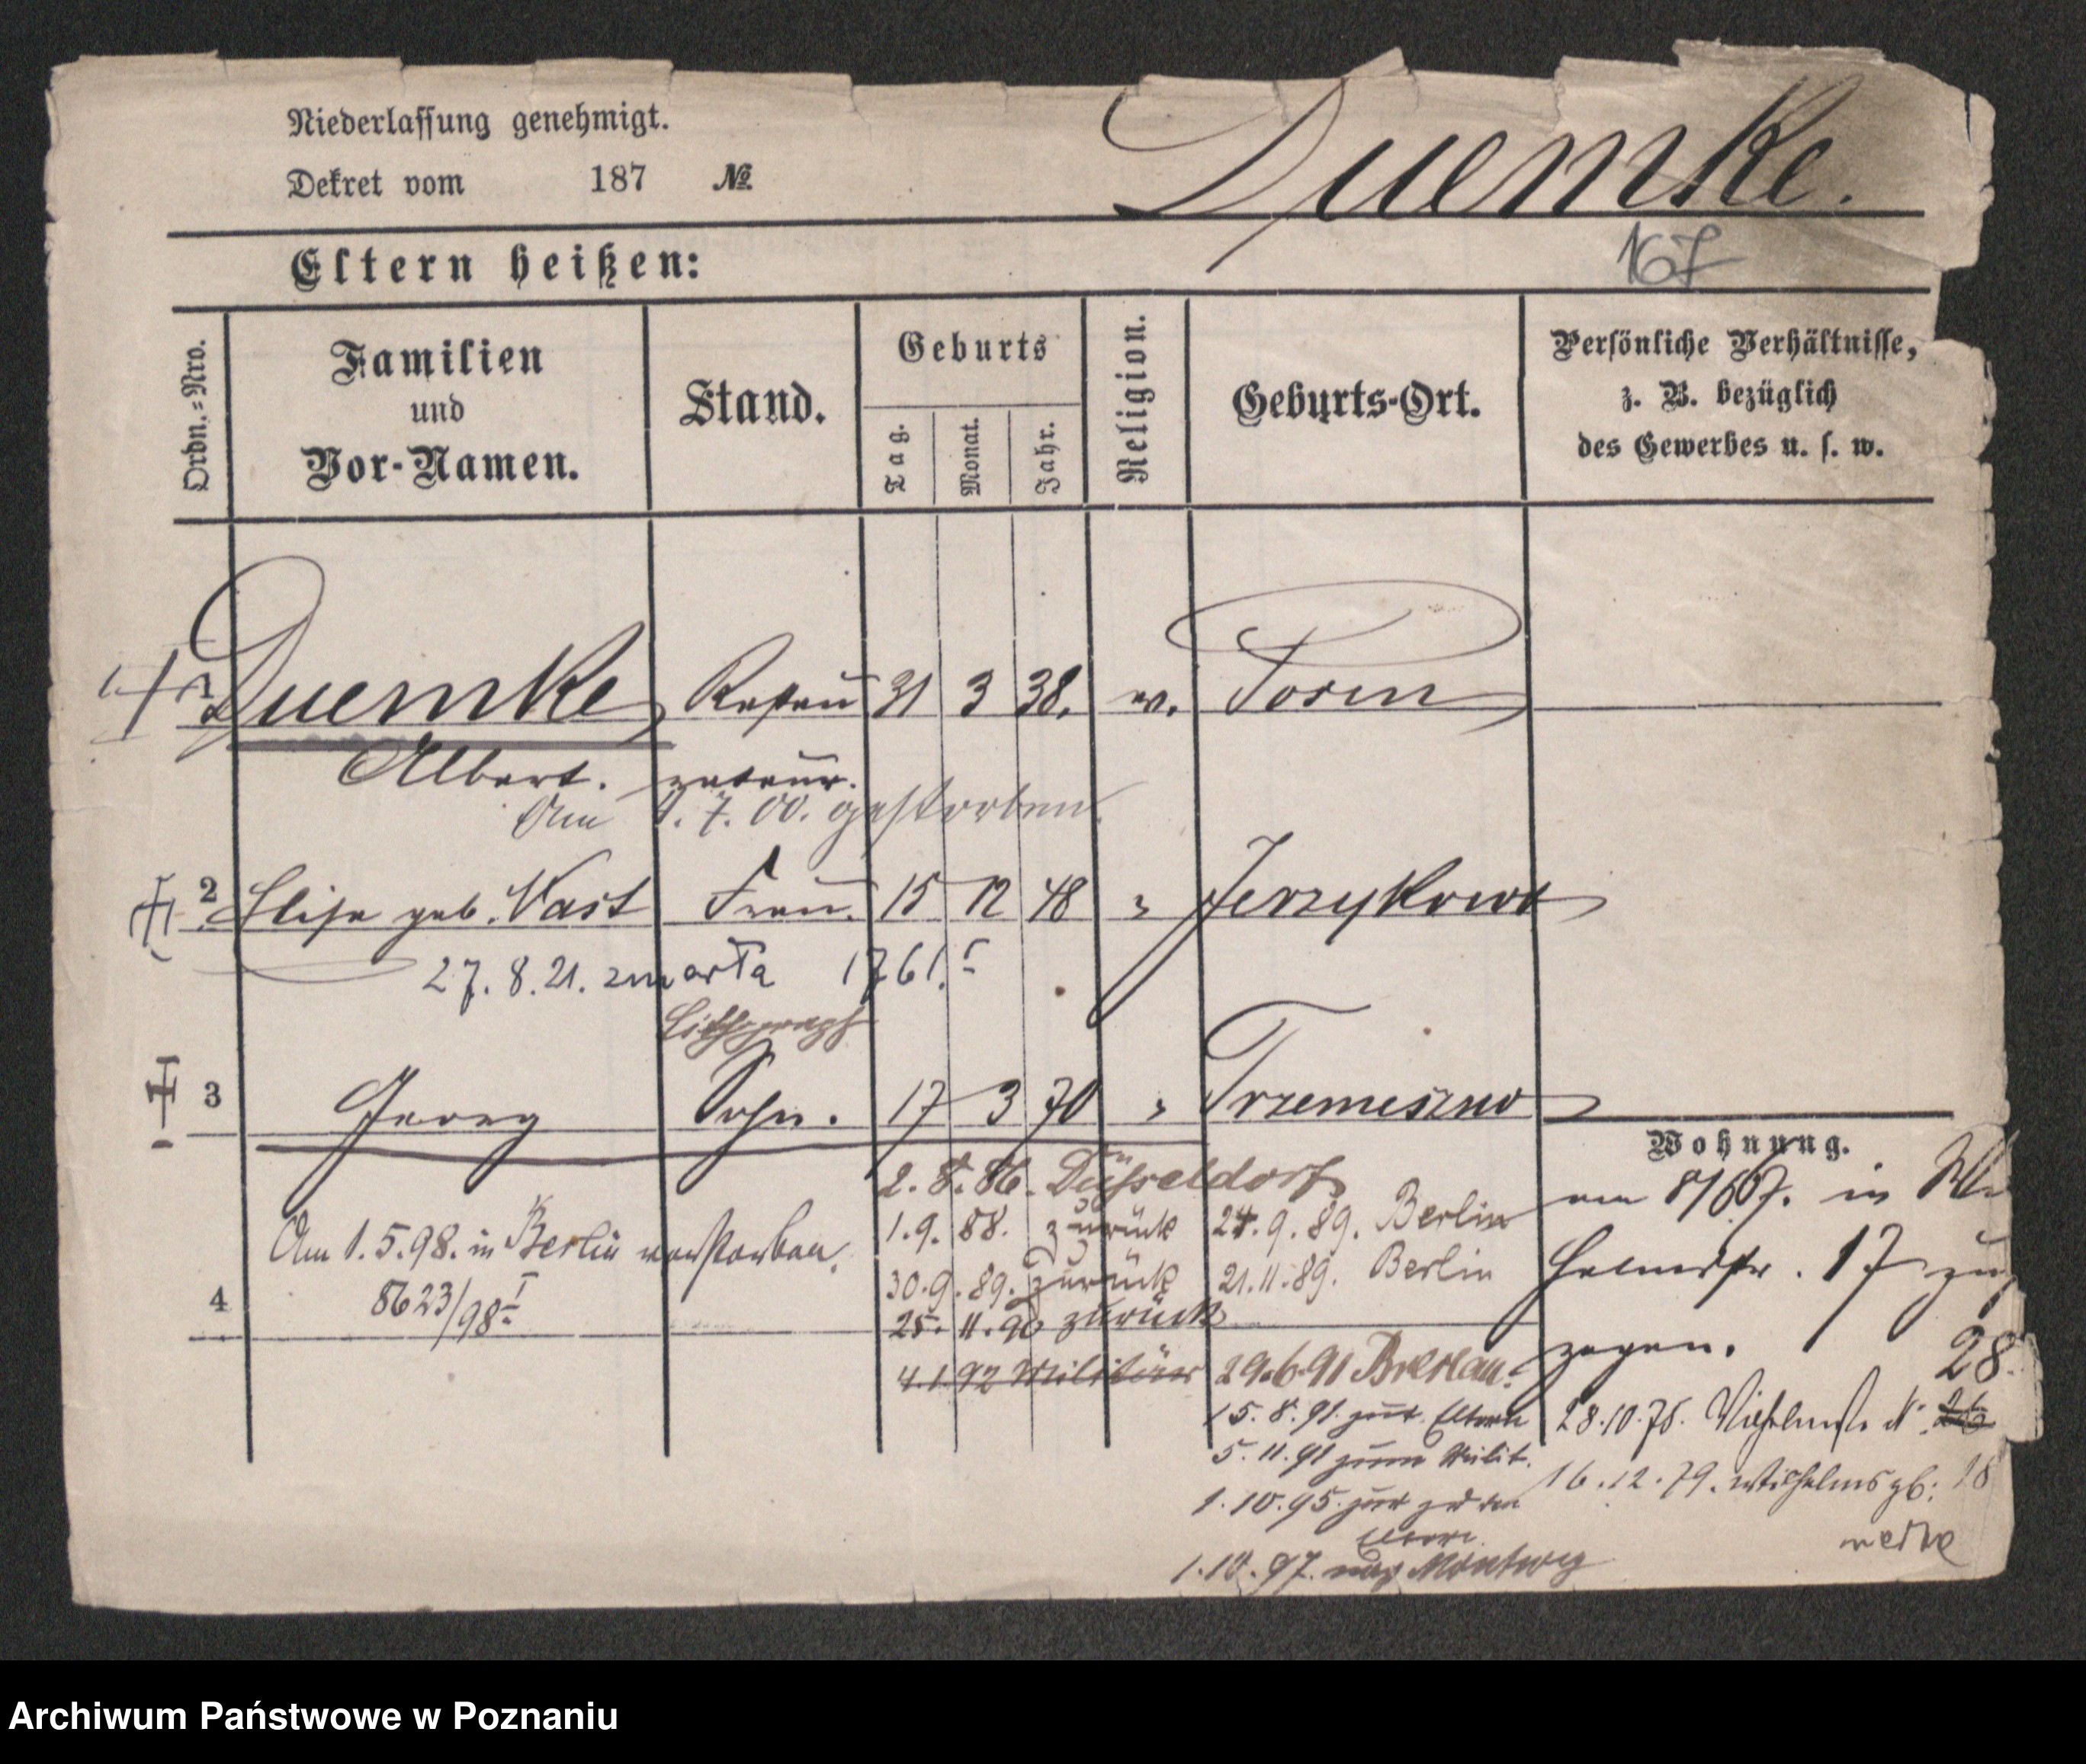 Niederlassung genehmigt.
Dekret vom 187 №
Duemke.
167
Eltern heißen:
Ordn.=Nro.
Familien
und
Vor-Namen.
Stand.
Geburts
Tag.
Monat.
Jahr.
Religion.
Geburts-Ort.
Persönliche Verhältnisse,
z. B. bezüglich
des Gewerbes u. s. w.
1 Duemke Restau 31 3 38. ev. Posen
Albert. rateur.
Am 1. 7. 00. gestorben.
2 Elise geb. Nast Frau. 15 12 48 " Jerzykowo
27. 8. 21. zmarła 1761. I
Lithograph
3 Georg Sohn. 17 3 70 " Trzemeszno
Wohnung.
2. 8. 86. Düsseldorf
1. 9. 88. zurück 24. 9. 89. Berlin
30. 9. 89. zurück 21. 11. 89. Berlin
25. 11. 90 zurück
4. 1. 92 Militär 29. 6. 91 Breslau.
15. 8. 91. zur. Eltern
5. 11. 91 zum Milit.
1. 10. 95. zur zu den
Eltern.
1. 10. 97. nach
Am 1. 5. 98. in Berlin verstorben.
4 8623/98 I
am 8/667. in
17 zu
zogen.
28.
28. 10. 76. Wilhelmstr. N. 26
16. 12. 79. Wilhelmspl: 18